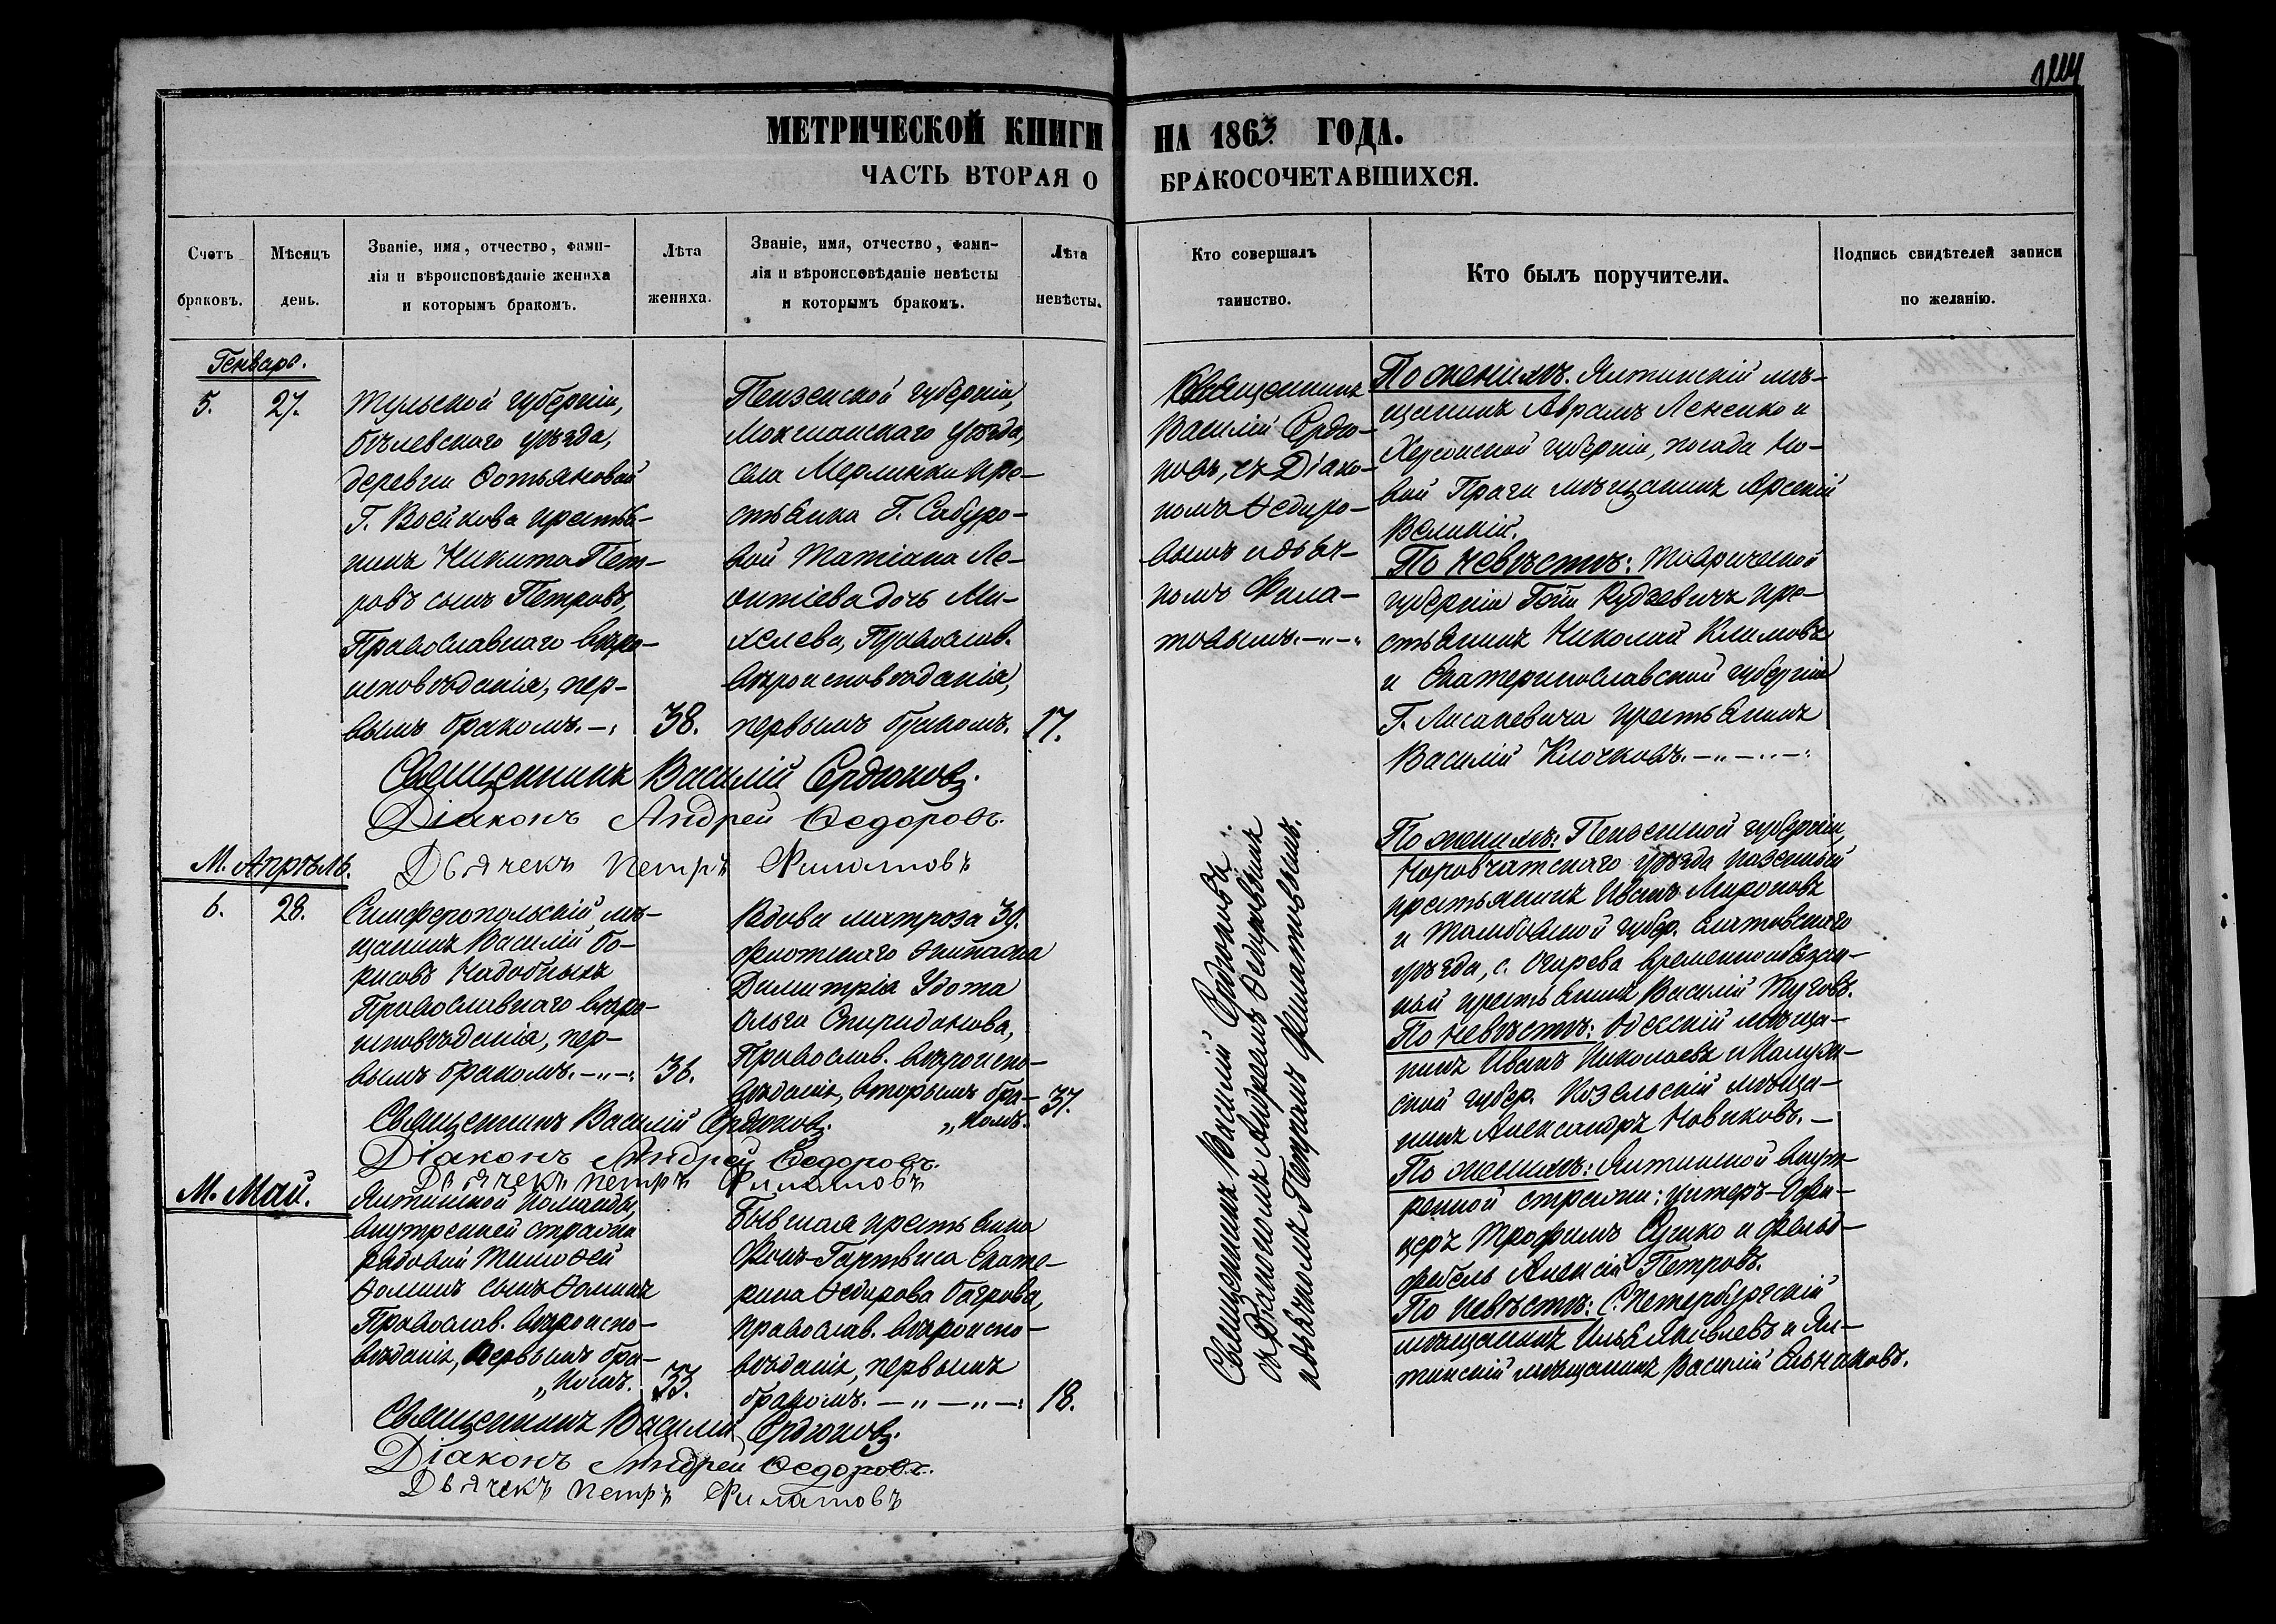 МЕТРИЧЕСКОЙ КНИГИ НА 1863 ГОДА.
ЧАСТЬ ВТОРАЯ О БРАКОСОЧЕТАВШИХСЯ.
Счетъ браковъ.
Мѣсяцъ день.
Званіе, имя, отчество, фами-
лія и вѣроисповѣданіе жениха
и которымъ бракомъ.
Лѣта жениха.
Званіе, имя, отчество, фами-
лія и вѣроисповѣданіе невѣсты
и которымъ бракомъ.
Лѣта невѣсты.
Кто совершалъ
таинство.
Кто былъ поручители.
Подпись свидѣтелей записи
по желанію.
Генварь.
5. 27.
Тульской губерніи,
Бѣлевскаго уѣзда,
деревни Фотьяновой
Г. Воейкова крестья-
нинъ Никита Пет-
ровъ сынъ Петровъ,
Православнаго вѣро-
исповѣданія, пер-
вымъ бракомъ. 38.
Пензенской губерніи,
Мокшанскаго уѣзда,
села Мерлинки кре-
стьянка Г. Сабуро-
вой Татіана Ле-
онтіева дочь Ми-
хелева, Православ.
вѣроисповѣданія,
первымъ бракомъ. 17.
Священникъ
Василій Сердю-
ковъ, съ Діако-
номъ Ѳедоро-
вымъ и дьяч-
комъ Фила-
товымъ.
По женихѣ: Ялтинскій мѣ-
щанинъ Аврамъ Лененко и
Херсонской губерніи, посада Но-
вой Праги мѣщанинъ Арсеній
Великій.
По невѣстѣ: Таврической
губерніи Кудзевичъ кре-
стьянинъ Николай Климовъ
и Екатеринославской губерніи
Г. Лисаневича крестьянинъ
Василій Клочковъ.
Священникъ Василій Сердюковъ.
Діаконъ Андрей Ѳедоровъ.
Дьячекъ Петръ Филатовъ
М. Апрѣль.
6. 28.
Симферопольскій мѣ-
щанинъ Василій Бо-
рисовъ Надобныхъ
Православнаго вѣро-
исповѣданія, пер-
вымъ бракомъ. 36.
Вдова матроза 39.
флотскаго экипажа
Димитрія Удота
Ольга Спиридонова,
Православ. вѣроиспо-
вѣданія, вторымъ бра-
комъ. 37.
Священникъ Василій Сердюковъ
съ Діакономъ Андреемъ Ѳедоровымъ
и дьячкомъ Петромъ Филатовымъ.
По женихѣ: Пензенской губерніи,
Норовчатскаго уѣзда казенный
крестьянинъ Иванъ Мироновъ
и Тамбовской губер. Елатовскаго
уѣзда, с. Огарева временнообязан-
ный крестьянинъ Василій Туговъ.
По невѣстѣ: Одесскій мѣща-
нинъ Иванъ Николаевъ и Калуж-
ской губер. Козельскій мѣща-
нинъ Александръ Новиковъ.
Священникъ Василій Сердюковъ.
Діаконъ Андрей Ѳедоровъ.
Дьячекъ Петръ Филатовъ
М. Май.
Ялтинской команды,
внутренней стражи
рядовой Тимоѳей
Ѳоминъ сынъ Ѳоминъ
Православ. вѣроиспо-
вѣданія, первымъ бра-
комъ. 33.
Бывшая крестьянка
Фонъ-Гартвиса Екате-
рина Ѳедорова Багрова,
православ. вѣроиспо-
вѣданія, первымъ
бракомъ. 18.
По женихѣ: Ялтинской внут-
ренной стражи: унтеръ-Офи-
церъ Трофимъ Сушко и фельд-
фебель Алексій Петровъ.
По невѣстѣ: С. Петербургскій
мѣщанинъ Илья Яковлевъ и Ял-
тинскій мѣщанинъ Василій Ельчаковъ.
Священникъ Василій Сердюковъ.
Діаконъ Андрей Ѳедоровъ.
Дьячекъ Петръ Филатовъ